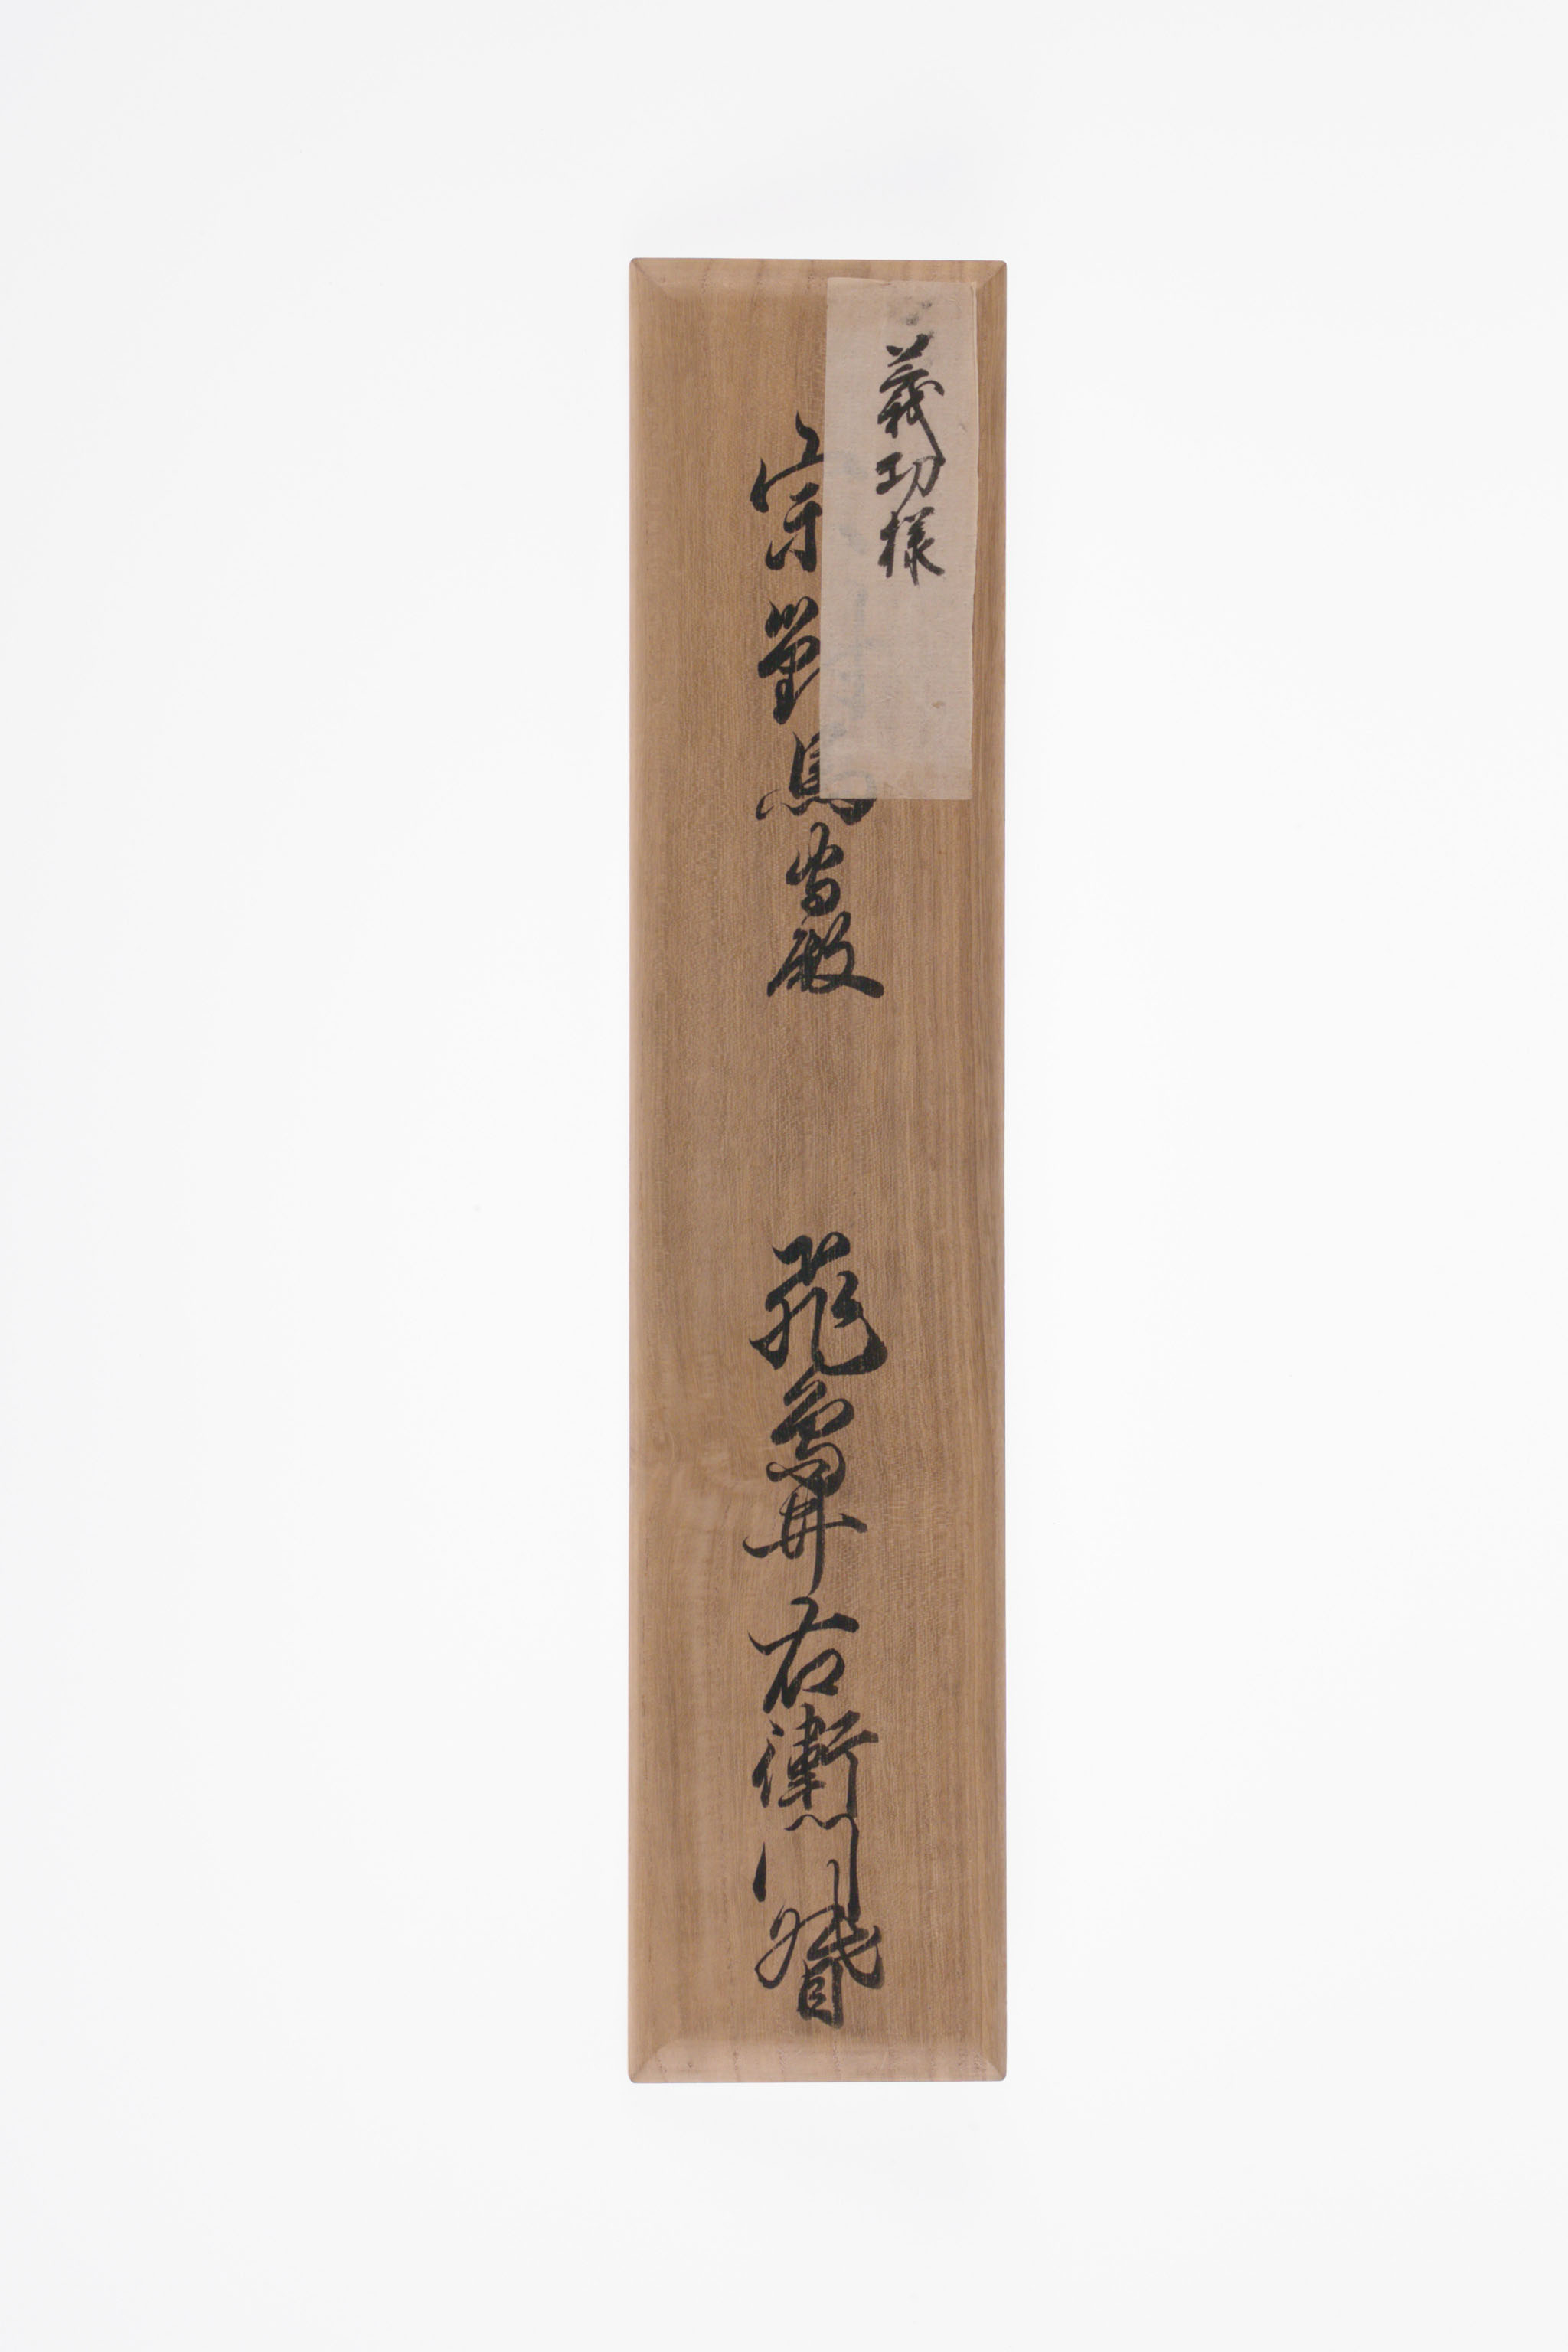 義功様
宗對馬守殿
飛鳥井右衛門督